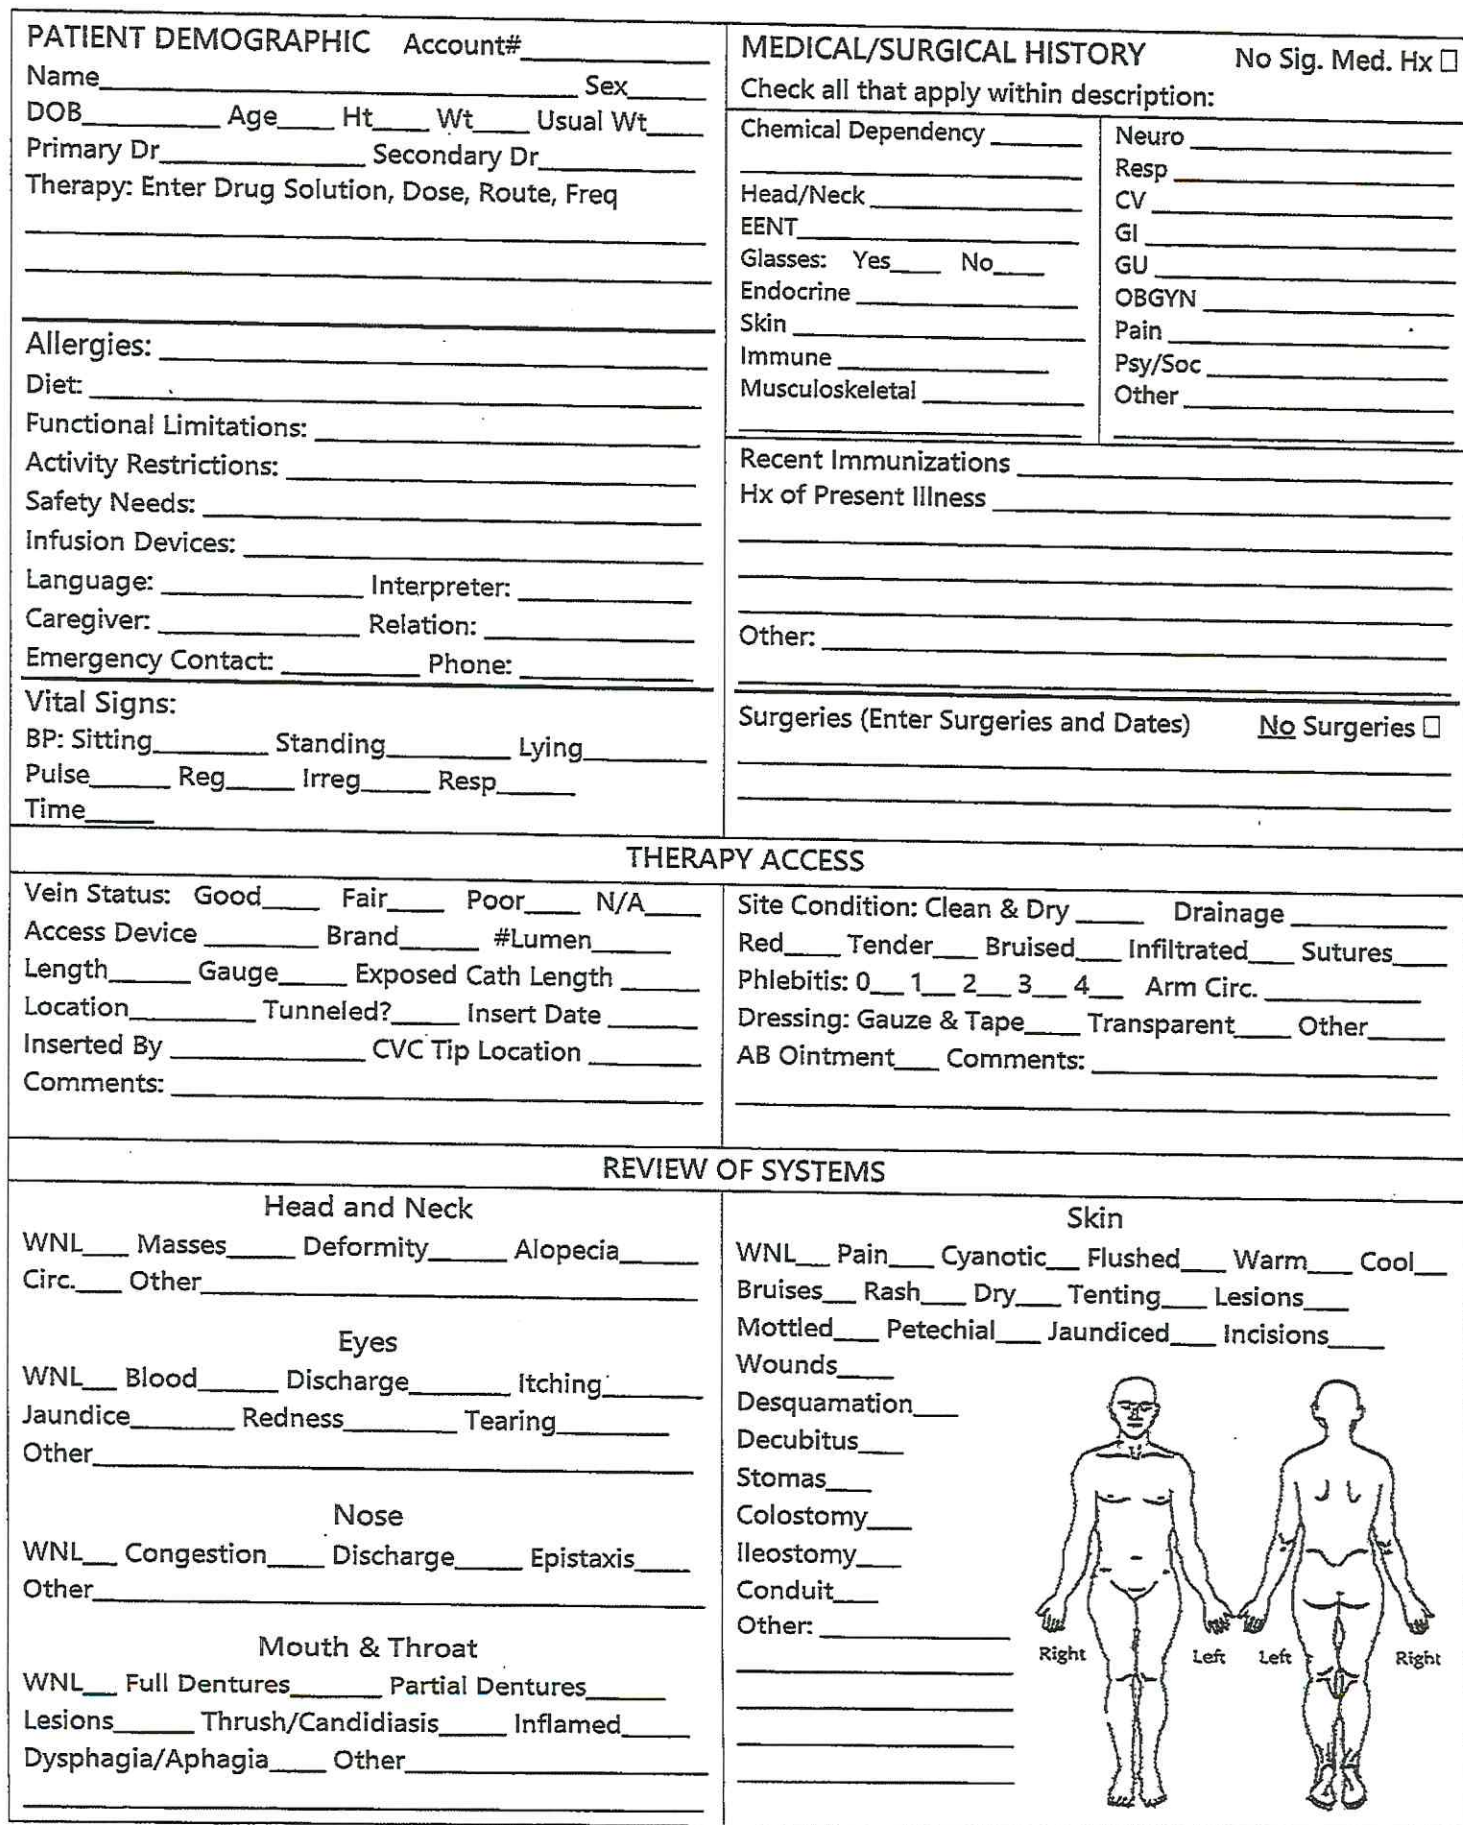 PATIENT DEMOGRAPHIC Account#
Name Sex
DOB Age Ht Wt Usual Wt
Primary Dr Secondary Dr
Therapy: Enter Drug Solution, Dose, Route, Freq
Allergies:
Diet:
Functional Limitations:
Activity Restrictions:
Safety Needs:
Infusion Devices:
Language: Interpreter:
Caregiver: Relation:
Emergency Contact: Phone:
Vital Signs:
BP: Sitting Standing Lying
Pulse Reg Irreg Resp
Time
MEDICAL/SURGICAL HISTORY No Sig. Med. Hx ☐
Check all that apply within description:
Chemical Dependency
Head/Neck
EENT
Glasses: Yes No
Endocrine
Skin
Immune
Musculoskeletal
Neuro
Resp
CV
GI
GU
OBGYN
Pain
Psy/Soc
Other
Recent Immunizations
Hx of Present Illness
Other:
Surgeries (Enter Surgeries and Dates) No Surgeries ☐
THERAPY ACCESS
Vein Status: Good Fair Poor N/A
Access Device Brand #Lumen
Length Gauge Exposed Cath Length
Location Tunneled? Insert Date
Inserted By CVC Tip Location
Comments:
Site Condition: Clean & Dry Drainage
Red Tender Bruised Infiltrated Sutures
Phlebitis: 0 1 2 3 4 Arm Circ.
Dressing: Gauze & Tape Transparent Other
AB Ointment Comments:
REVIEW OF SYSTEMS
Head and Neck
WNL Masses Deformity Alopecia
Circ. Other
Eyes
WNL Blood Discharge Itching
Jaundice Redness Tearing
Other
Nose
WNL Congestion Discharge Epistaxis
Other
Mouth & Throat
WNL Full Dentures Partial Dentures
Lesions Thrush/Candidiasis Inflamed
Dysphagia/Aphagia Other
Skin
WNL Pain Cyanotic Flushed Warm Cool
Bruises Rash Dry Tenting Lesions
Mottled Petechial Jaundiced Incisions
Wounds
Desquamation
Decubitus
Stomas
Colostomy
Ileostomy
Conduit
Other:
Right Left Left Right